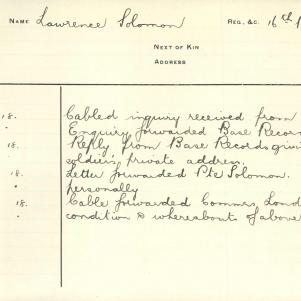 NAME Lawrence Solomon REG., &C. 16th
NEXT OF KIN
ADDRESS
18. Cabled inquiry received from
Enquiry forwaided Base Recor
18. Reply from Base Records givi
soldier's private address.
18. Letter forwaided Pte Solomon.
personally
18. Cable forwaided Commrs, Lond
condition & whereabouts of above